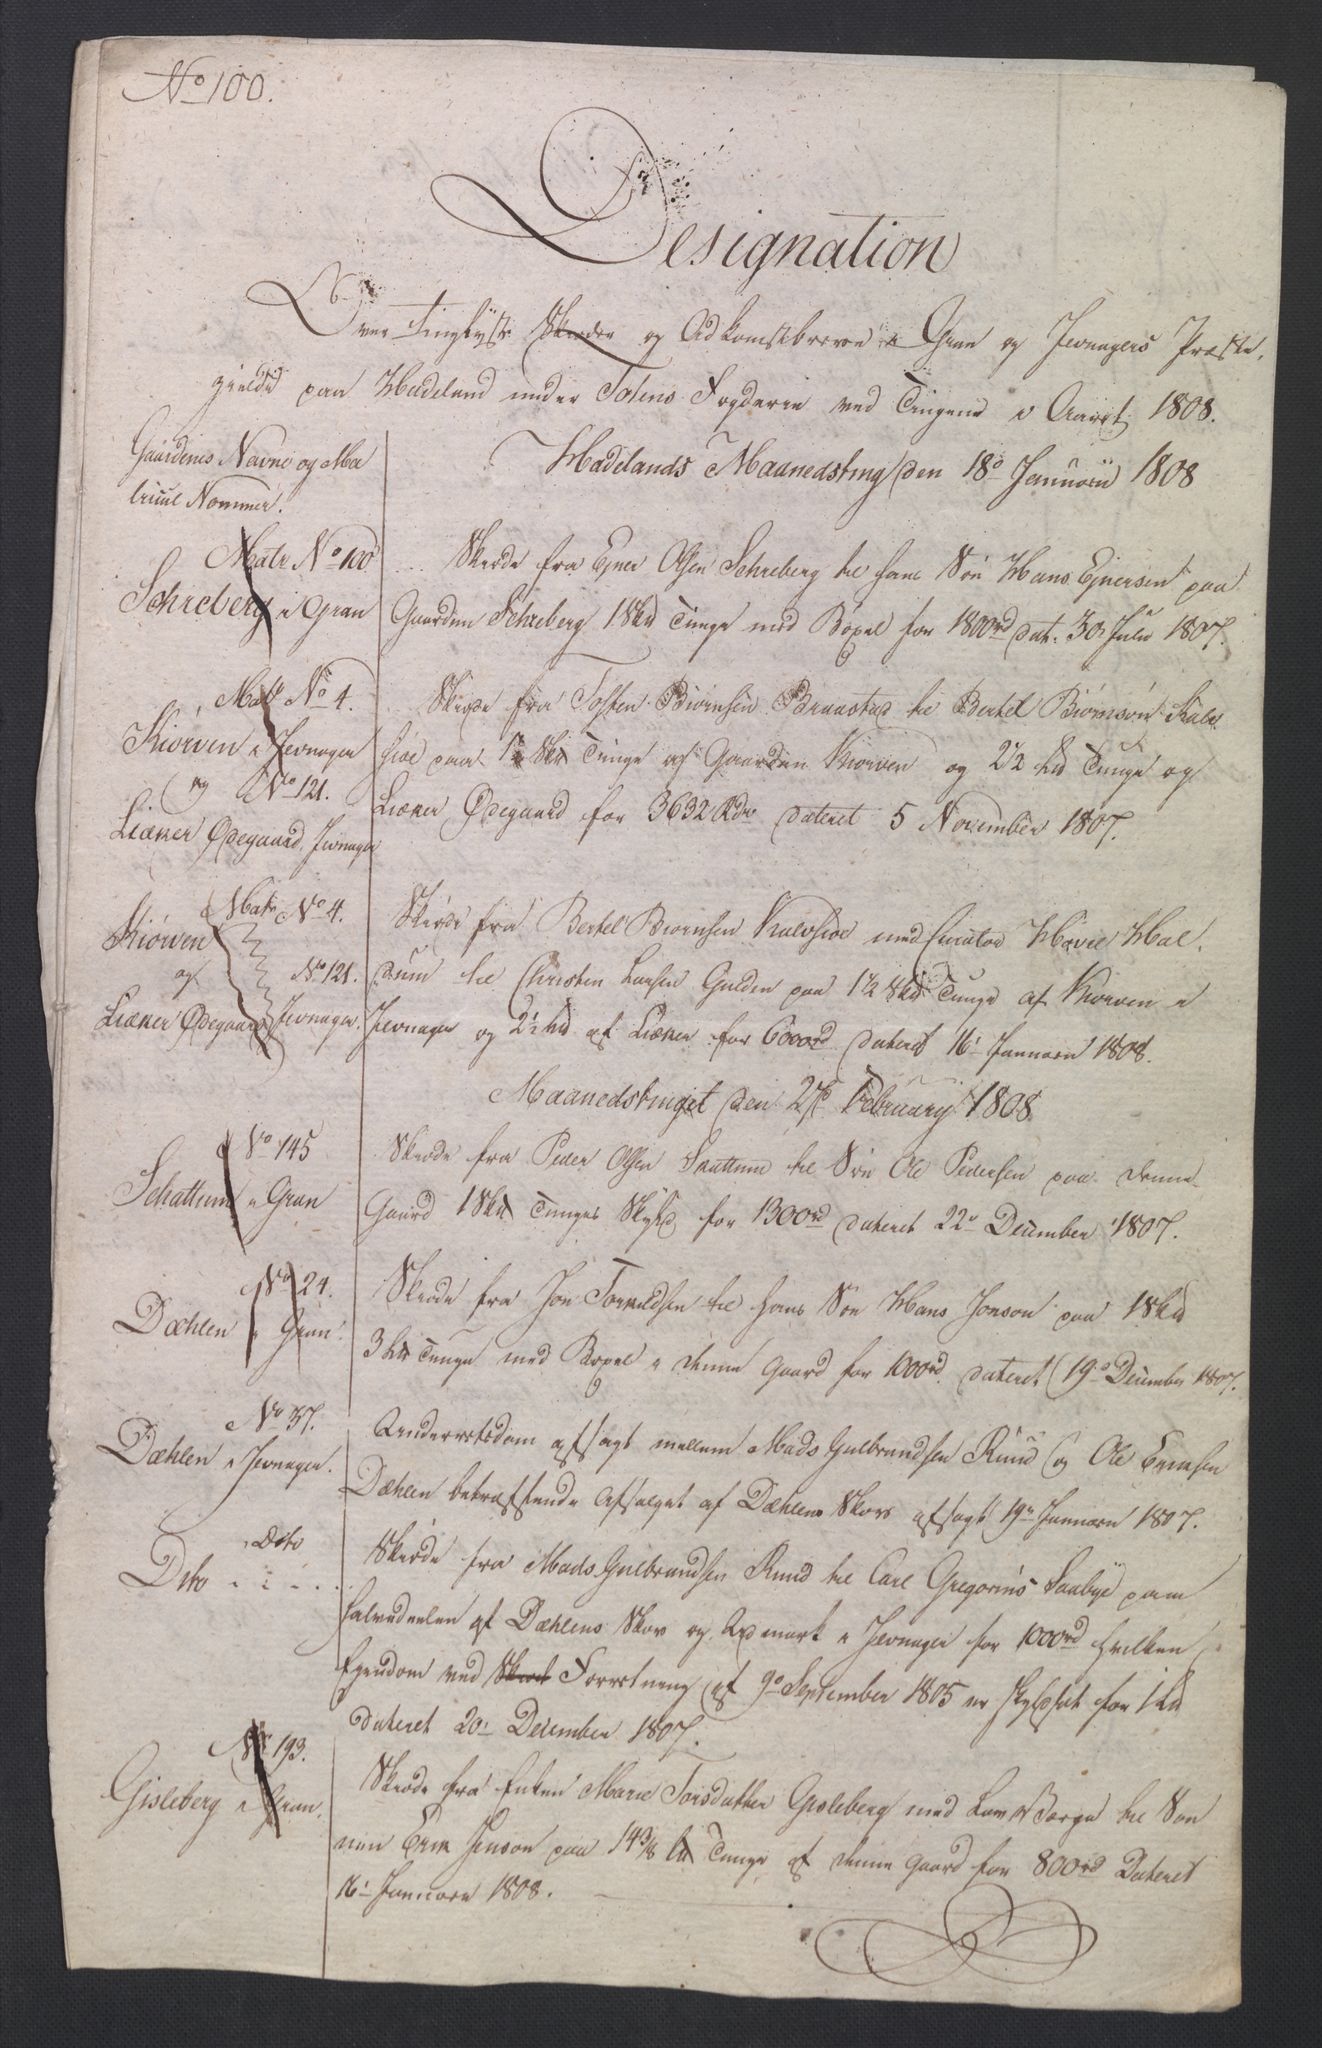 No 100.
Designation
Over Tinglyste Skiøder og Adkomstbreve i Gran og Jevnagers Præste,
gield paa Hadeland under Totens Fogderie ved Tingene i Aaret 1808.
Gaardenes Navne og Ma
tricul Nommer.
Hadelands Maanedsting den 18de Januarii 1808
Matr No 100
Schreberg i Gran
Skiøde fra Ejner Olsen Schreberg til hans Søn Hans Ejnersen paa
Gaarden Schreberg 1 Skd Tunge med Bøxel for 1800rd dat: 30 Julii 1807.
Matr No 4.
Kiørven i Jevnager
og No 121.
Liæner Ødegaard, Jevnager
Skiøde fra Tosten Biørnsen Braastad til Bertel Biørnsøn Kalv
siøe paa Skd Tunge af Gaarden Kiørven og 2 1/2 hd Tunge og
Liæner Ødegaard for 3632 Rdr dateret 5 November 1807.
Matr No 4.
Kiørven
og No 121.
Liæner Ødegaard Jevnager.
Skiøde fra Bertel Biørnsen Kalvsiøe med Curator Hovel Hal,
dum til Christen Larsen Gulden paa 1 1/2 Skd Tunge af Kiørven i
Jevnager og 2 1/2 hd af Liæner for 6000rd dateret 16 Januarii 1808.
Maanedstinget den 27de February 1808
No 145
Schattum i Gran
Skiøde fra Peder Olsen Skattum til Søn Ole Pedersen paa denne
Gaard 1 Skd Tunges Skyld for 1300rd dateret 22de December 1807.
No 24.
Dæhlen i Gran.
Skiøde fra Jon Torvildsen til hans Søn Hans Jonson paa 1 Skd
3 hd Tunge med Bøxel i denne Gaard for 1000rd. dateret 19de December 1807.
No 37.
Dæhlen i Jevnager.
Underretsdom afsagt mellem Mads Gulbrandsen Ruud og Ole Ericksen
Dæhlen betræffende Afsalget af Dæhlens Skov afsagt 19de Januarii 1807.
Dito
Dito
Skiøde fra Mads Gulbrandsen Ruud til Carl Gregorius Saabye paa
halvedeelen af Dæhlens Skov og Udmark i Jevnager for 1000rd hvilken
Eyendom ved Skiøt Forretning af 9de September 1805 er skyldsat for 1 hd
dateret 20 December 1807.
No 193.
Gisleberg i Gran.
Skiøde fra Enken Marie Torsdatter Gisleberg med Lau Værge til Søn
nen Erik Jenson paa 14 3/8 Tunge af denne Gaard for 800rd Dateret
16 Januarii 1808.